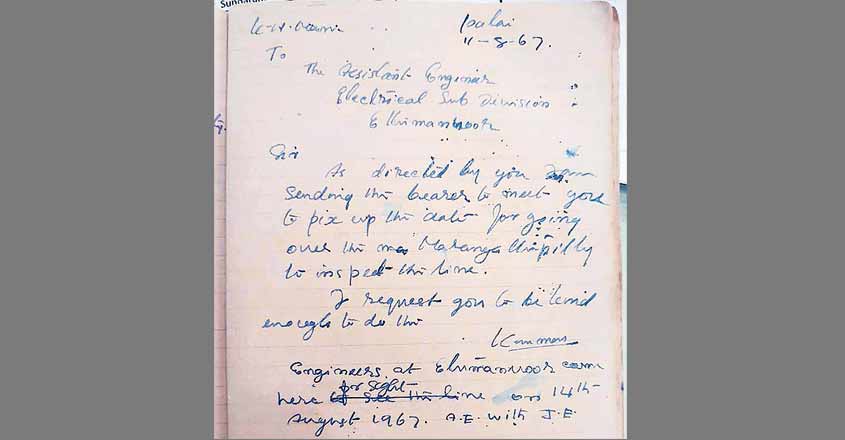 K.M. Mani
Palai
11-8-67.
To
The Assistant Engineer
Electrical Sub Division
Ettumanoor
Sir
As directed by you I am
sending the bearer to meet you
to pix up the date for going
over the Marangatthupilly
to inspect the line.
I request you to be kind
enough to do this
Engineers at Ettumanoor came
here for sight
to see the line on 14th
August 1967. A.E. with J.E.